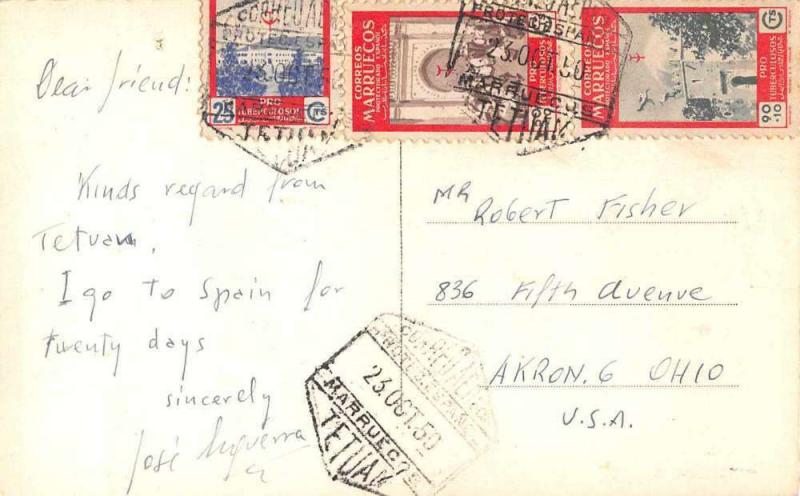 Dear friend:
Kinds regard from
Tetuan.
I go to Spain for
twenty days
sincerely
José
MR Robert Fisher
836 Fifth Avenue
AKRON. 6 OHIO
U.S.A.
PRO
TUBERCULOSOS
25 CTS
CORREOS
MARRUECOS
PRO
TUBERCULOSOS
CORREOS
MARRUECOS
PRO
TUBERCULOSOS
90
+10
CTS
23.OCT.50
MARRUECOS
TETUAN
23.OCT.50
MARRUECOS
TETUAN
TETUAN